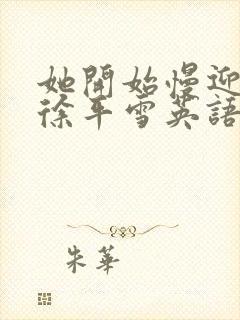 她開始慢迎
徐平雪英語
朱華